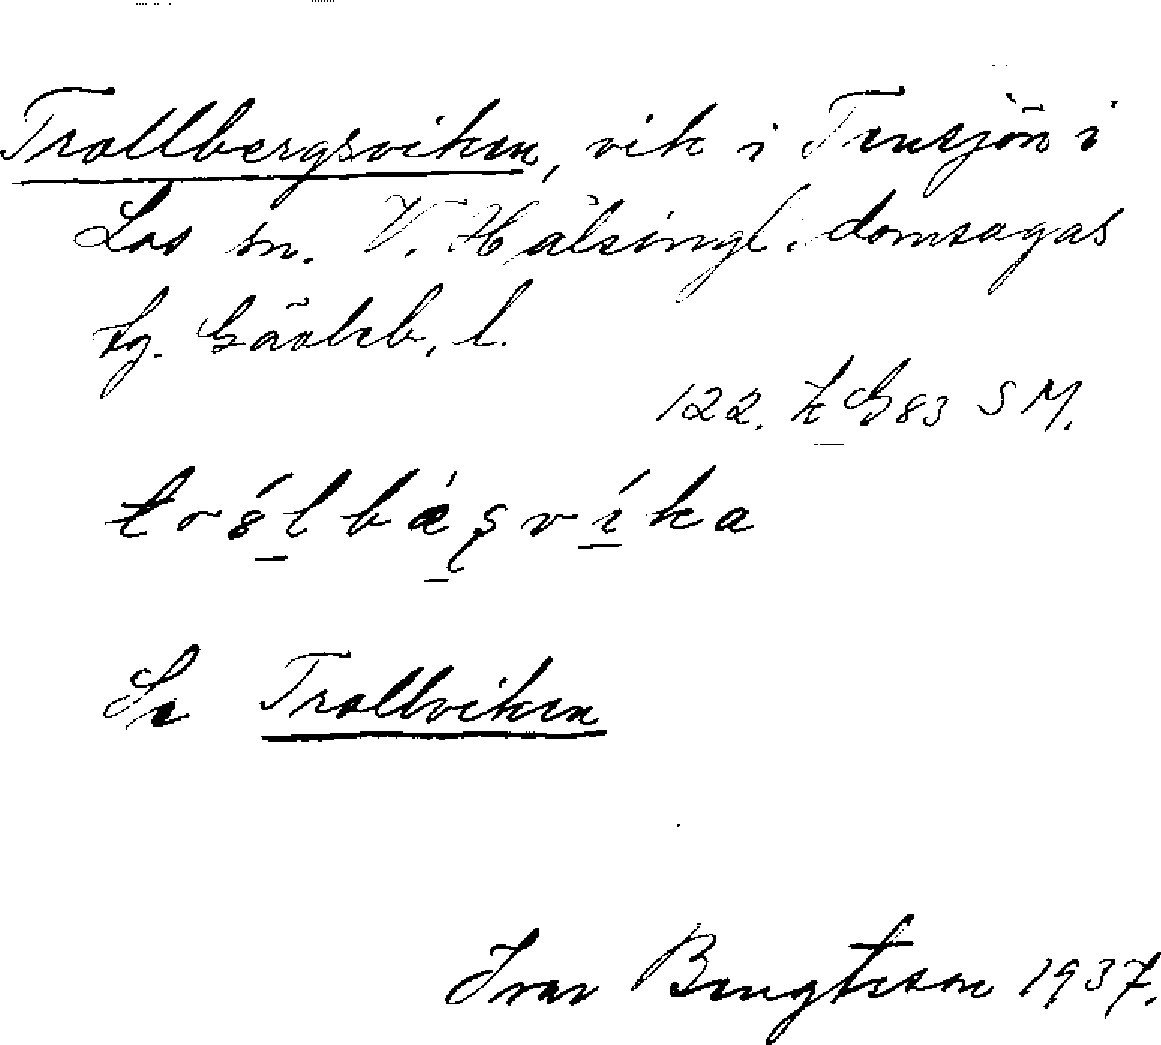 Trollbergsviken, vik i Tensjön i
Los sn. V. Hälsingl. domsagas
tg. Gävleb. l.
122. Æ G 83 SM.
Se Trollviken
Ivar Bengtsson 1937.